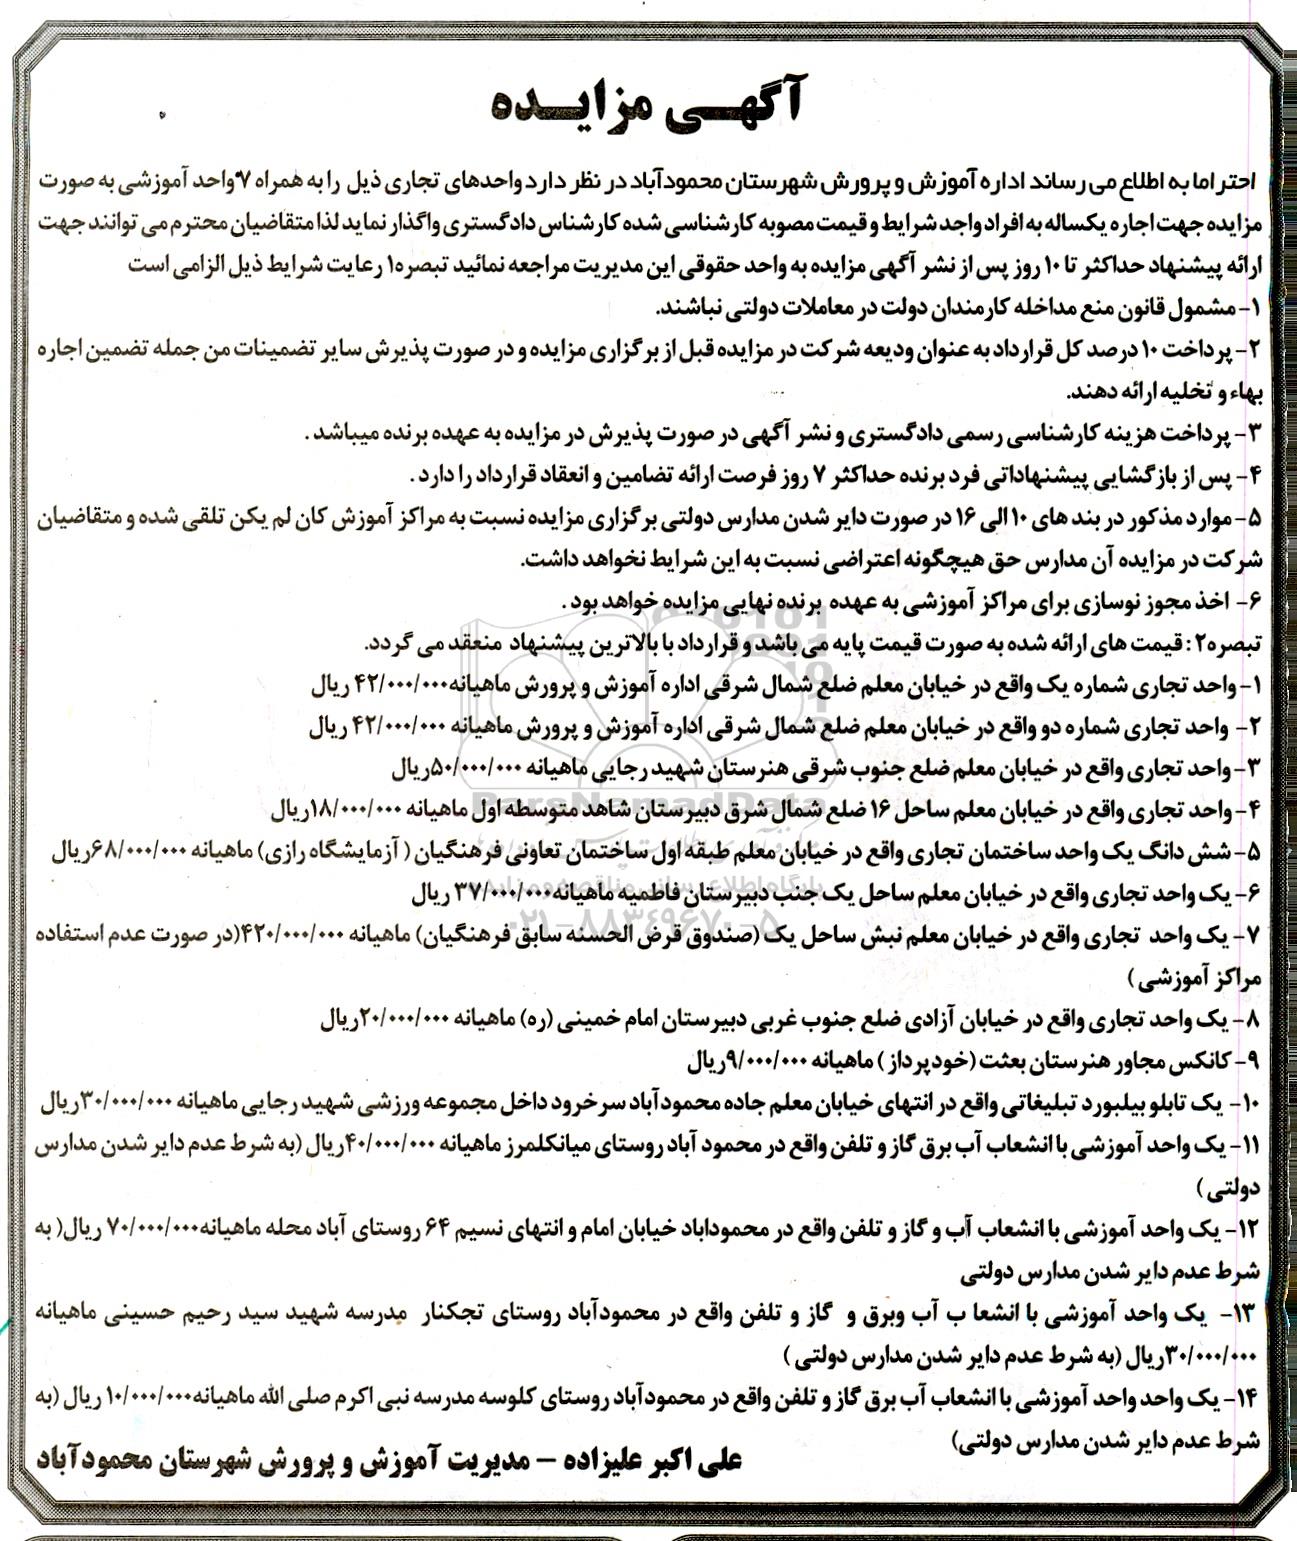 آگهـی مزایـده
احتراما به اطلاع می رساند اداره آموزش و پرورش شهرستان محمودآباد در نظر دارد واحدهای تجاری ذیل را به همراه ۷ واحد آموزشی به صورت
مزایده جهت اجاره یکساله به افراد واجد شرایط و قیمت مصوبه کارشناسی شده کارشناس دادگستری واگذار نماید لذا متقاضیان محترم می توانند جهت
ارائه پیشنهاد حداکثر تا ۱۰ روز پس از نشر آگهی مزایده به واحد حقوقی این مدیریت مراجعه نمائید تبصره۱ رعایت شرایط ذیل الزامی است
۱- مشمول قانون منع مداخله کارمندان دولت در معاملات دولتی نباشند.
۲- پرداخت ۱۰ درصد کل قرارداد به عنوان ودیعه شرکت در مزایده قبل از برگزاری مزایده و در صورت پذیرش سایر تضمینات من جمله تضمین اجاره
بهاء و تخلیه ارائه دهند.
۳- پرداخت هزینه کارشناسی رسمی دادگستری و نشر آگهی در صورت پذیرش در مزایده به عهده برنده میباشد .
۴- پس از بازگشایی پیشنهاداتی فرد برنده حداکثر ۷ روز فرصت ارائه تضامین و انعقاد قرارداد را دارد .
۵- موارد مذکور در بند های ۱۰ الی ۱۶ در صورت دایر شدن مدارس دولتی برگزاری مزایده نسبت به مراکز آموزش کان لم یکن تلقی شده و متقاضیان
شرکت در مزایده آن مدارس حق هیچگونه اعتراضی نسبت به این شرایط نخواهد داشت.
۶- اخذ مجوز نوسازی برای مراکز آموزشی به عهده برنده نهایی مزایده خواهد بود .
تبصره۲ : قیمت های ارائه شده به صورت قیمت پایه می باشد و قرارداد با بالاترین پیشنهاد منعقد می گردد.
۱- واحد تجاری شماره یک واقع در خیابان معلم ضلع شمال شرقی اداره آموزش و پرورش ماهیانه۴۲/۰۰۰/۰۰۰ ریال
۲- واحد تجاری شماره دو واقع در خیابان معلم ضلع شمال شرقی اداره آموزش و پرورش ماهیانه ۴۲/۰۰۰/۰۰۰ ریال
۳- واحد تجاری واقع در خیابان معلم ضلع جنوب شرقی هنرستان شهید رجایی ماهیانه ۵۰/۰۰۰/۰۰۰ریال
ParsNamadData
۴- واحد تجاری واقع در خیابان معلم ساحل ۱۶ ضلع شمال شرق دبیرستان شاهد متوسطه اول ماهیانه ۱۸/۰۰۰/۰۰۰ریال
۵- شش دانگ یک واحد ساختمان تجاری واقع در خیابان معلم طبقه اول ساختمان تعاونی فرهنگیان ( آزمایشگاه رازی) ماهیانه ۶۸/۰۰۰/۰۰۰ریال
پایگاه اطلاع رسانی مناقصه و مزایده
۶- یک واحد تجاری واقع در خیابان معلم ساحل یک جنب دبیرستان فاطمیه ماهیانه۳۷/۰۰۰/۰۰۰ ریال
۰۲۱-۸۸۳۴۹۶۷۰-۵
۷- یک واحد تجاری واقع در خیابان معلم نبش ساحل یک (صندوق قرض الحسنه سابق فرهنگیان) ماهیانه ۴۲۰/۰۰۰/۰۰۰(در صورت عدم استفاده
مراکز آموزشی )
۸- یک واحد تجاری واقع در خیابان آزادی ضلع جنوب غربی دبیرستان امام خمینی (ره) ماهیانه ۲۰/۰۰۰/۰۰۰ریال
۹- کانکس مجاور هنرستان بعثت (خودپرداز ) ماهیانه ۹/۰۰۰/۰۰۰ریال
۱۰- یک تابلو بیلبورد تبلیغاتی واقع در انتهای خیابان معلم جاده محمودآباد سرخرود داخل مجموعه ورزشی شهید رجایی ماهیانه ۳۰/۰۰۰/۰۰۰ریال
۱۱- یک واحد آموزشی با انشعاب آب برق گاز و تلفن واقع در محمود آباد روستای میانکلمرز ماهیانه ۴۰/۰۰۰/۰۰۰ریال (به شرط عدم دایر شدن مدارس
دولتی )
۱۲- یک واحد آموزشی با انشعاب آب و گاز و تلفن واقع در محموداباد خیابان امام و انتهای نسیم ۶۴ روستای آباد محله ماهیانه۷۰/۰۰۰/۰۰۰ ریال( به
شرط عدم دایر شدن مدارس دولتی
۱۳- یک واحد آموزشی با انشعا ب آب وبرق و گاز و تلفن واقع در محمودآباد روستای تجکنار مدرسه شهید سید رحیم حسینی ماهیانه
۳۰/۰۰۰/۰۰۰ریال (به شرط عدم دایر شدن مدارس دولتی )
۱۴- یک واحد واحد آموزشی با انشعاب آب برق گاز و تلفن واقع در محمودآباد روستای کلوسه مدرسه نبی اکرم صلی الله ماهیانه۱۰/۰۰۰/۰۰۰ ریال (به
شرط عدم دایر شدن مدارس دولتی)
علی اکبر علیزاده – مدیریت آموزش و پرورش شهرستان محمودآباد